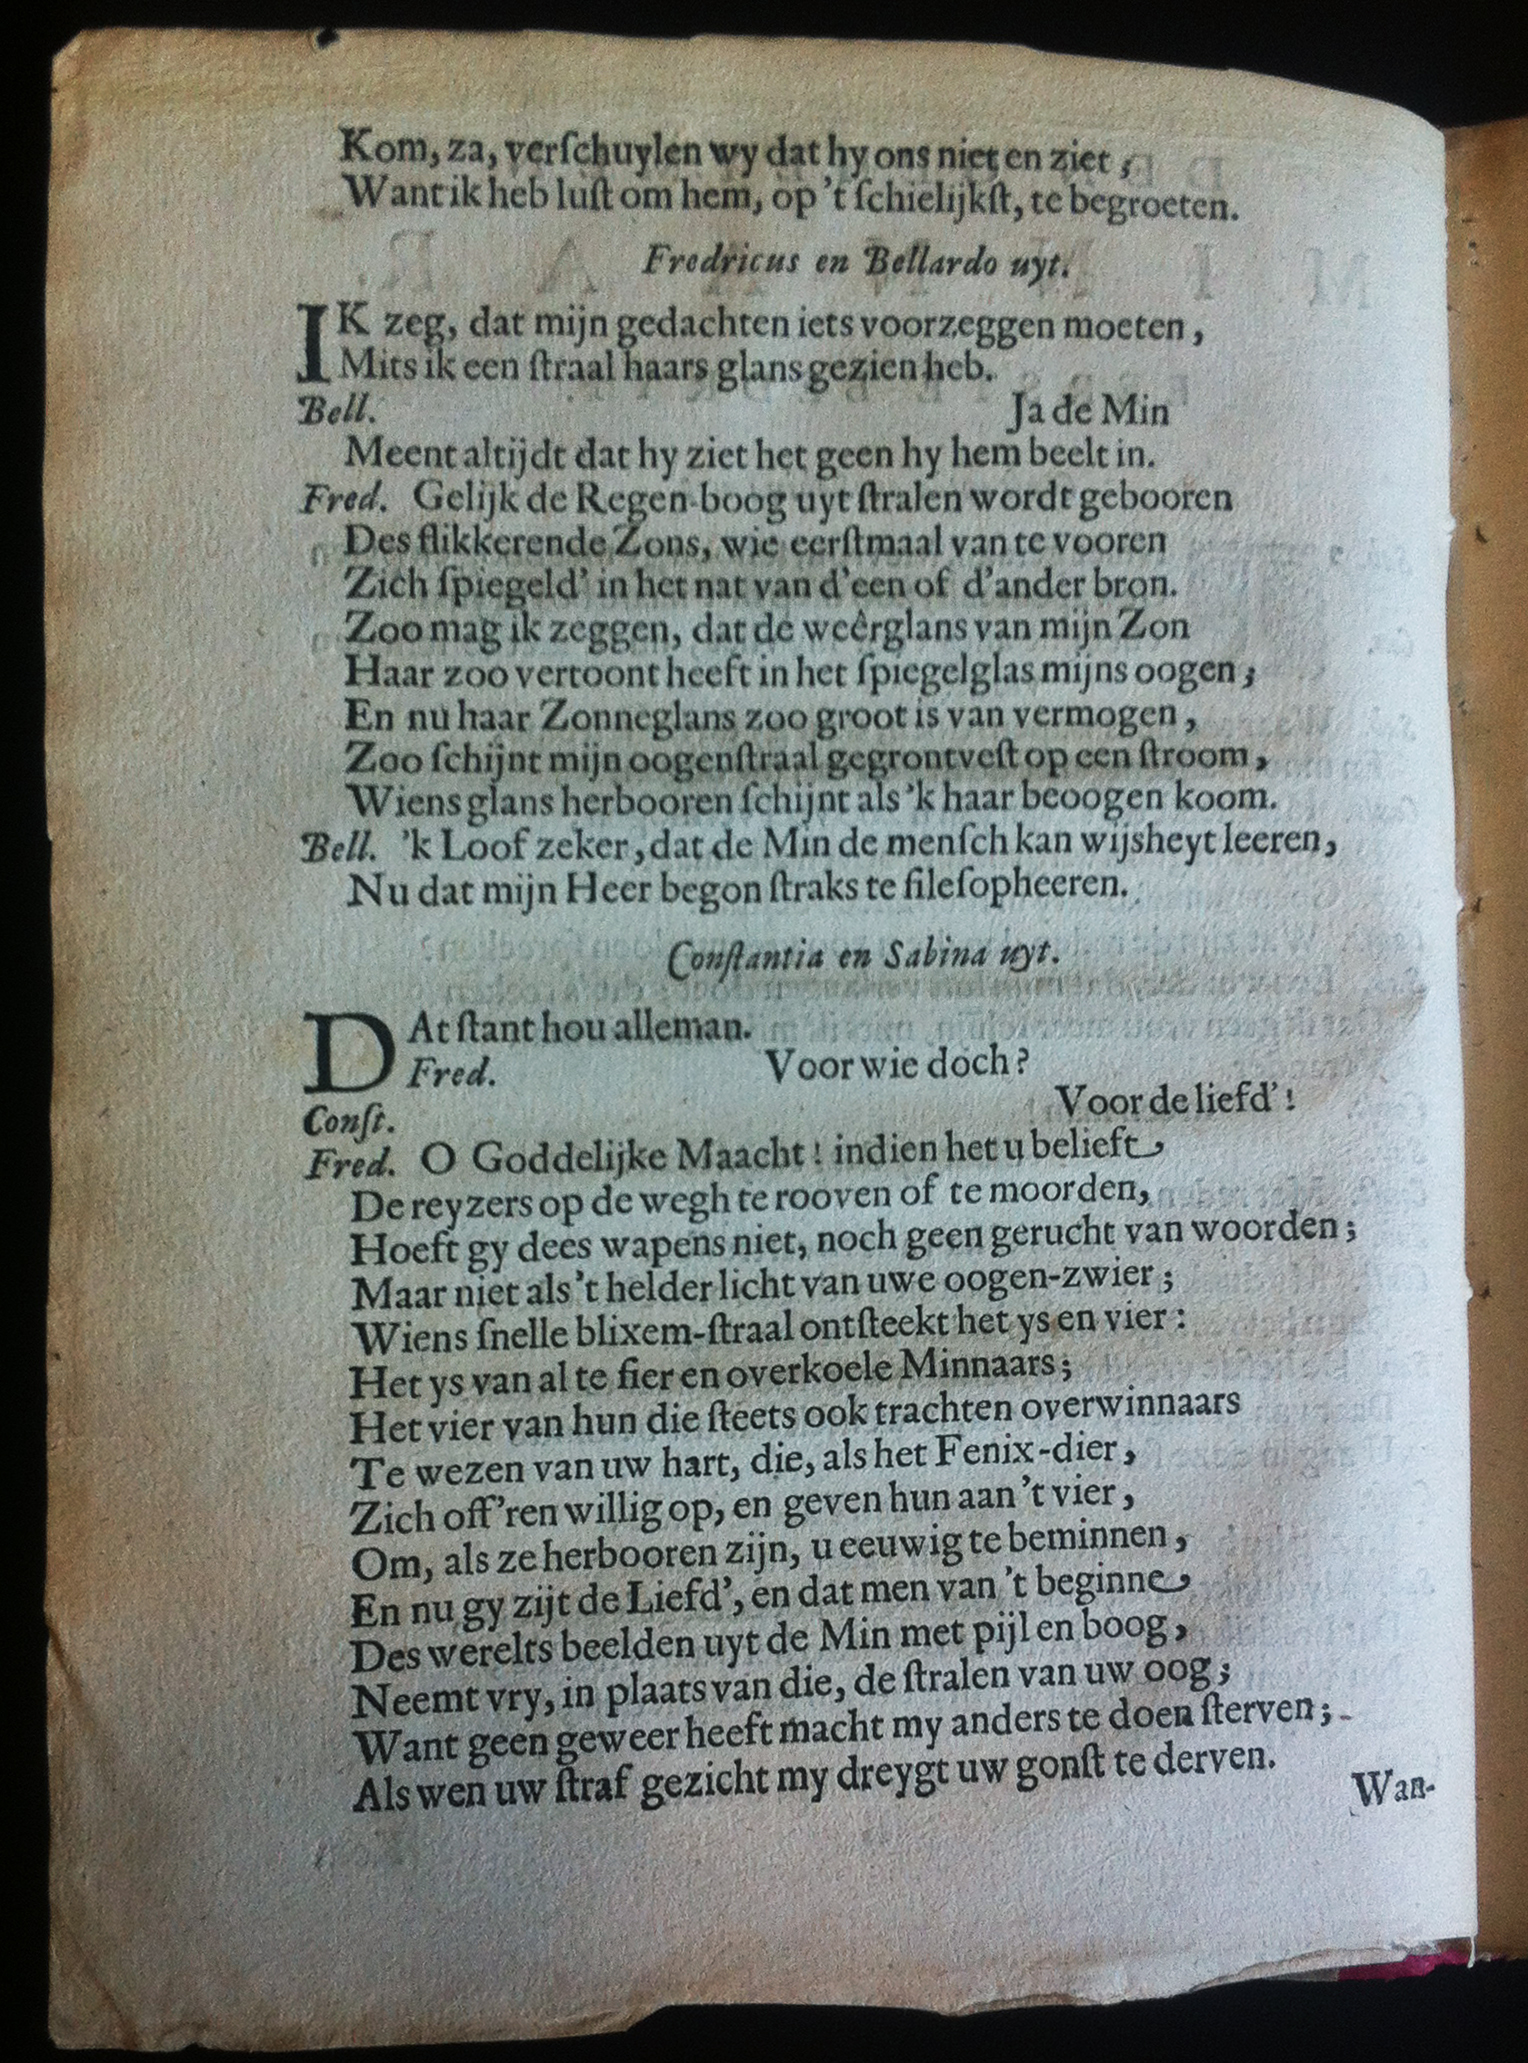 Kom, za, verſchuylen wy dat hy ons niet en ziet,
Want ik heb luſt om hem, op 't ſchielijkſt, te begroeten.
Fredricus en Bellardo uyt.
IK zeg, dat mijn gedachten iets voorzeggen moeten,
Mits ik een ſtraal haars glans gezien heb.
Bell. Ja de Min
Meent altijdt dat hy ziet het geen hy hem beelt in.
Fred. Gelijk de Regen-boog uyt ſtralen wordt gebooren
Des flikkerende Zons, wie eerſtmaal van te vooren
Zich ſpiegeld' in het nat van d'een of d'ander bron.
Zoo mag ik zeggen, dat de weêrglans van mijn Zon
Haar zoo vertoont heeft in het ſpiegelglas mijns oogen;
En nu haar Zonneglans zoo groot is van vermogen,
Zoo ſchijnt mijn oogenſtraal gegrontveſt op een ſtroom,
Wiens glans herbooren ſchijnt als 'k haar beoogen koom.
Bell. 'k Loof zeker, dat de Min de menſch kan wijsheyt leeren,
Nu dat mijn Heer begon ſtraks te fileſopheeren.
Conſtantia en Sabina uyt.
DAt ſtant hou alleman.
Fred. Voor wie doch?
Conſt. Voor de liefd'!
Fred. O Goddelijke Maacht! indien het u belieft,
De reyzers op de wegh te rooven of te moorden,
Hoeft gy dees wapens niet, noch geen gerucht van woorden;
Maar niet als 't helder licht van uwe oogen-zwier;
Wiens ſnelle blixem-ſtraal ontſteekt het ys en vier:
Het ys van al te fier en overkoele Minnaars;
Het vier van hun die ſteets ook trachten overwinnaars
Te wezen van uw hart, die, als het Fenix-dier,
Zich off'ren willig op, en geven hun aan 't vier,
Om, als ze herbooren zijn, u eeuwig te beminnen,
En nu gy zijt de Liefd', en dat men van 't beginne
Des werelts beelden uyt de Min met pijl en boog,
Neemt vry, in plaats van die, de ſtralen van uw oog;
Want geen geweer heeft macht my anders te doen ſterven;
Als wen uw ſtraf gezicht my dreygt uw gonſt te derven.
Wan-